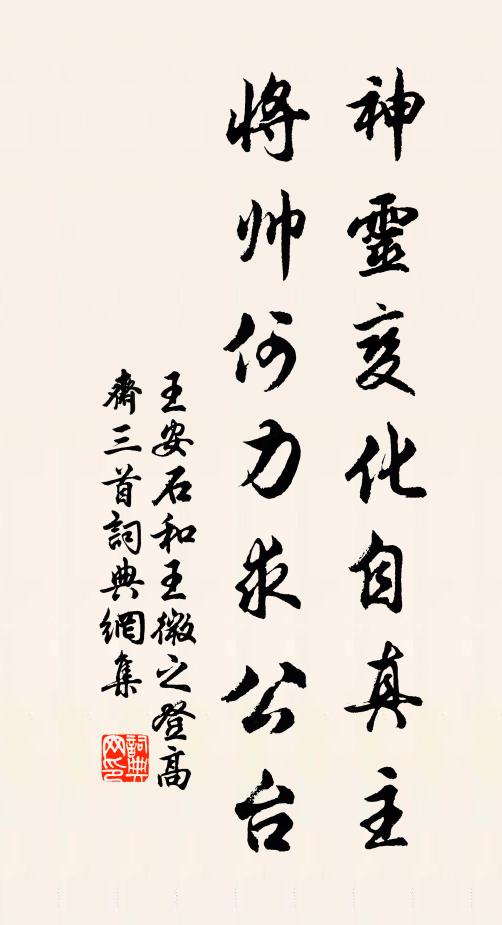 神靈変化自真主
将帅何力求公台
王安石和王微之登高
齋三首詞典網集
詞典网印